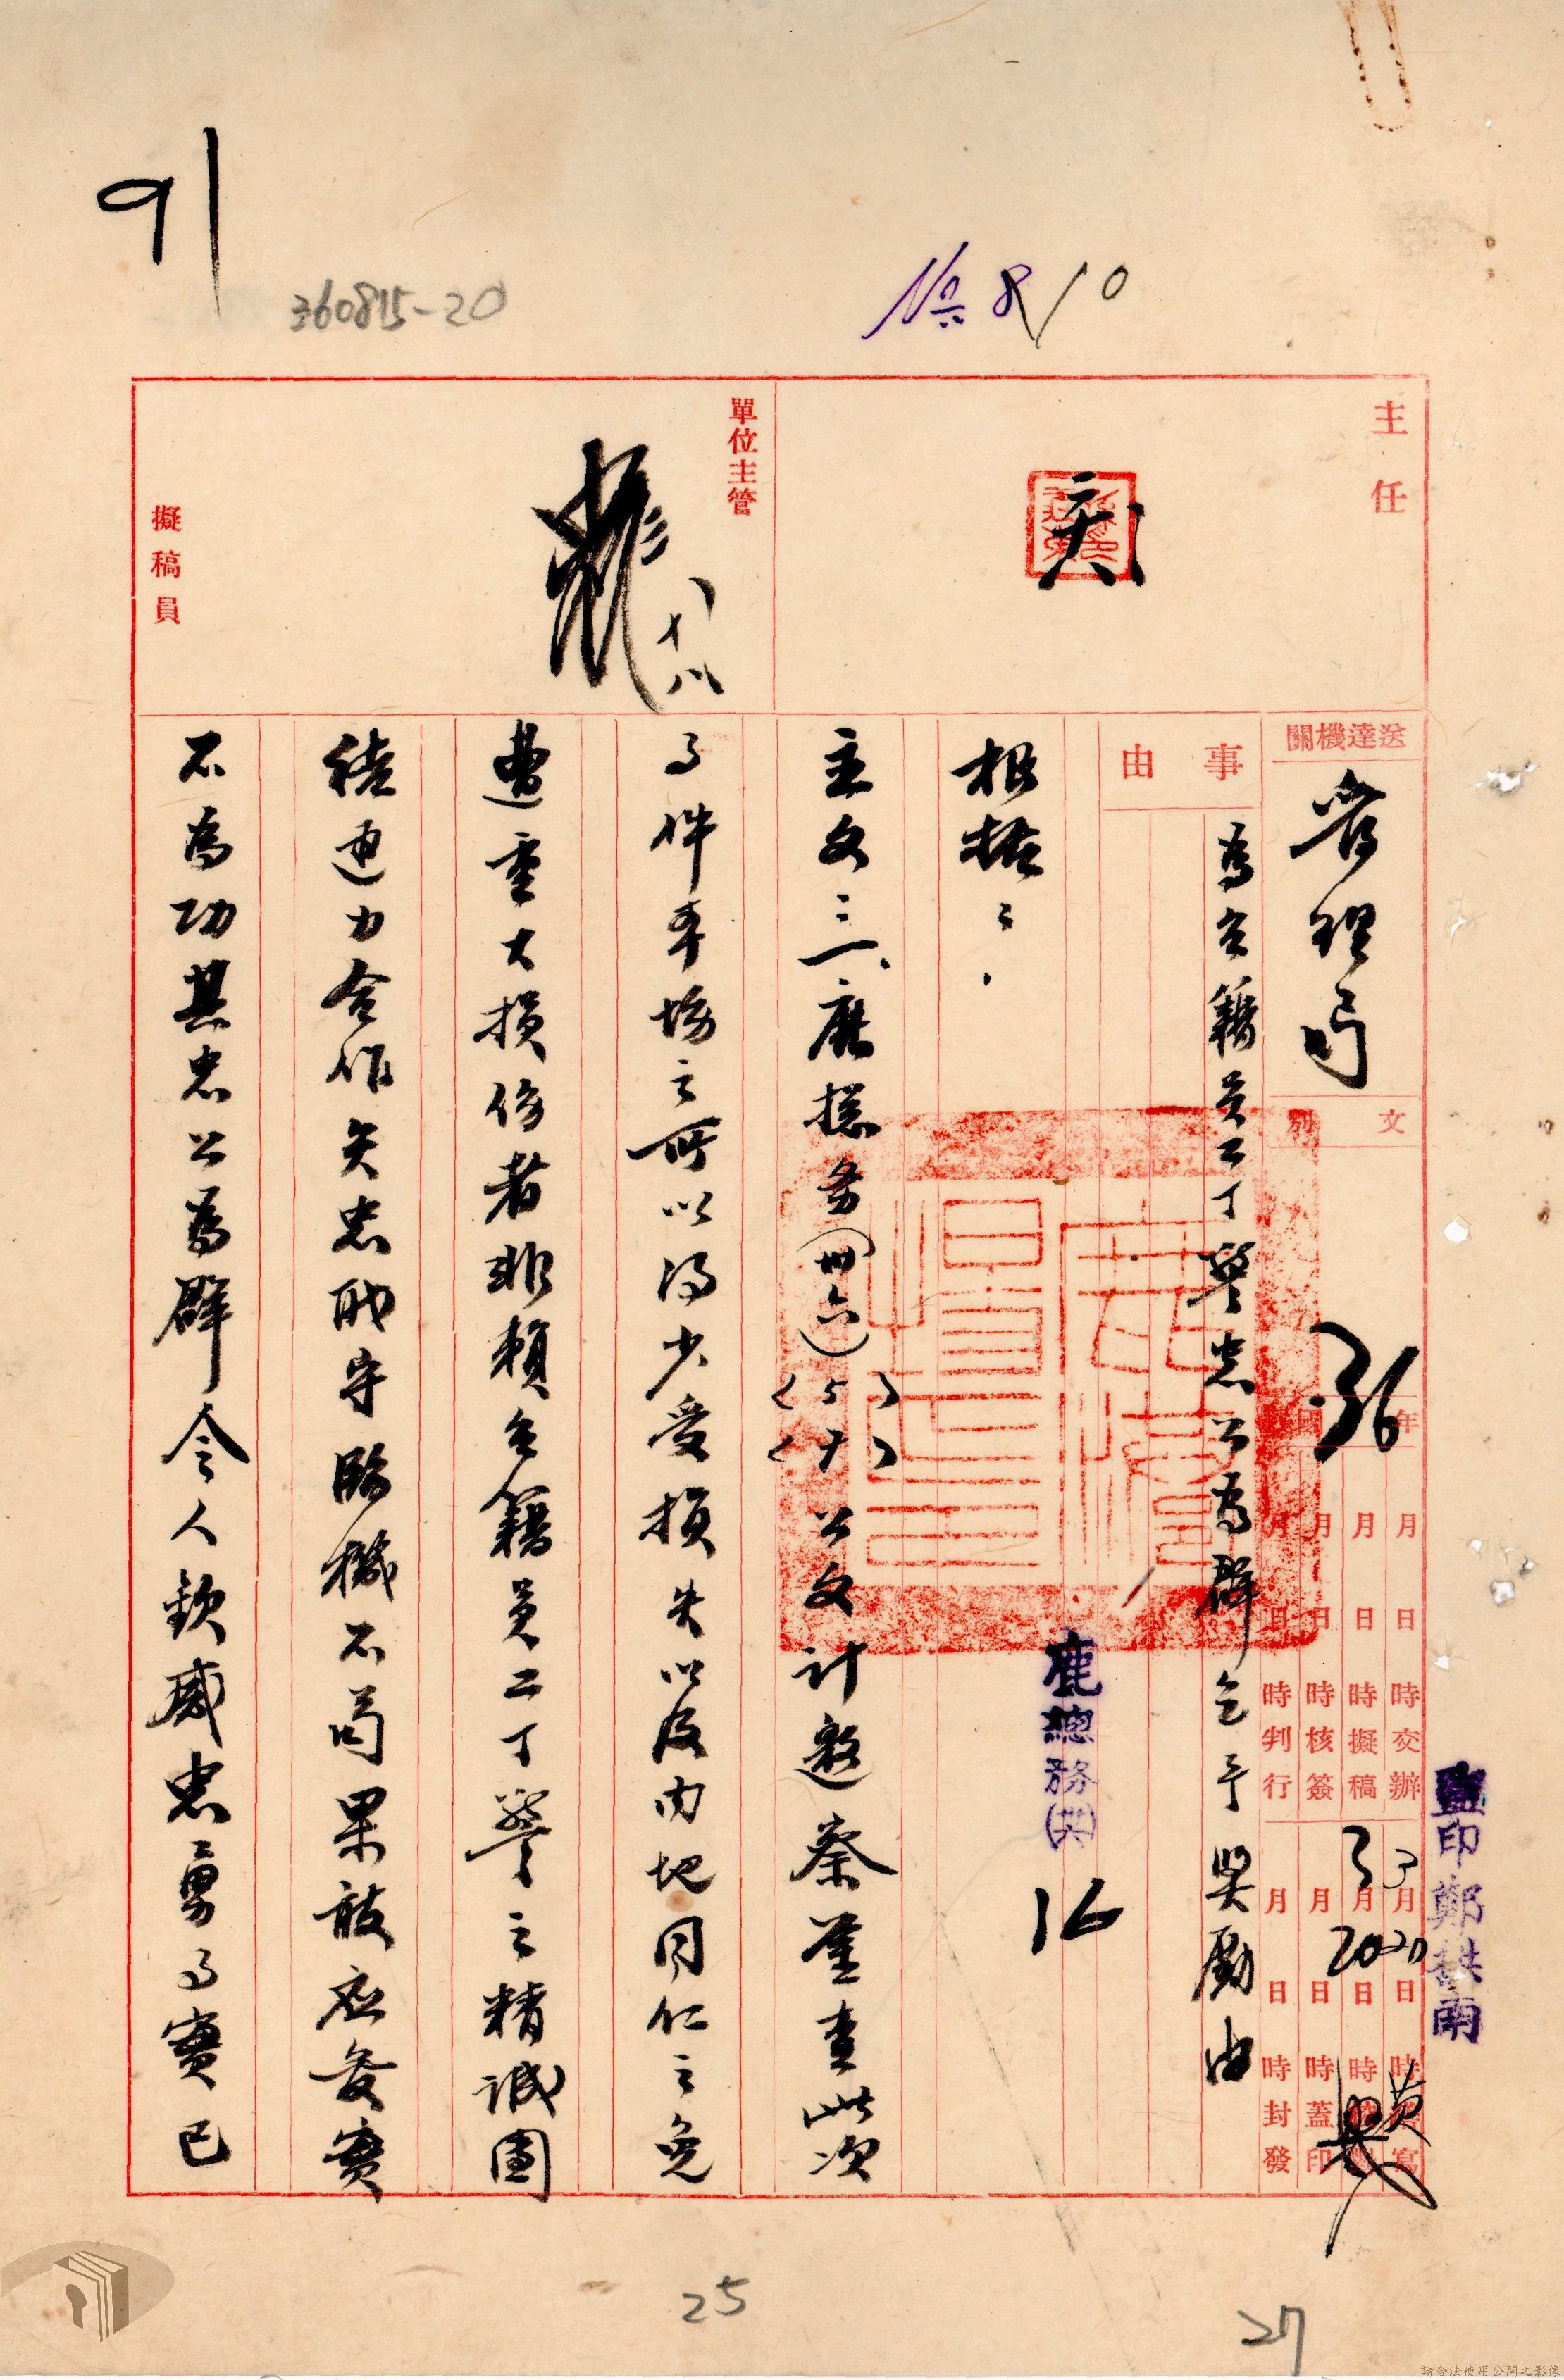 91
360815-20
8/10
主任
單位主管
擬稿員
八
十八
送達機關
管理局
文別
36
年
月 日 時交辦
月 日 時擬稿
月 日 時核簽
月 日 時判行
3月20日
3月20日
月 日 時蓋印
月 日 時封發
監印鄭拱南
事由
為台籍員工丁警忠公為群乞予奬勵由
鹿總務(卅六)
16
主文三一、鹿總務(卅六)
公文計邀蔡鑒查此次
事件本場之所以得少受損失以及內地同仁之免
遭重大損傷者非賴台籍員工丁警之精誠團
結通力合作矢忠職守臨機不苟果敢應變實
不為功其忠公為群令人欽感忠勇事實已
25
27
請合法使用公開之影像